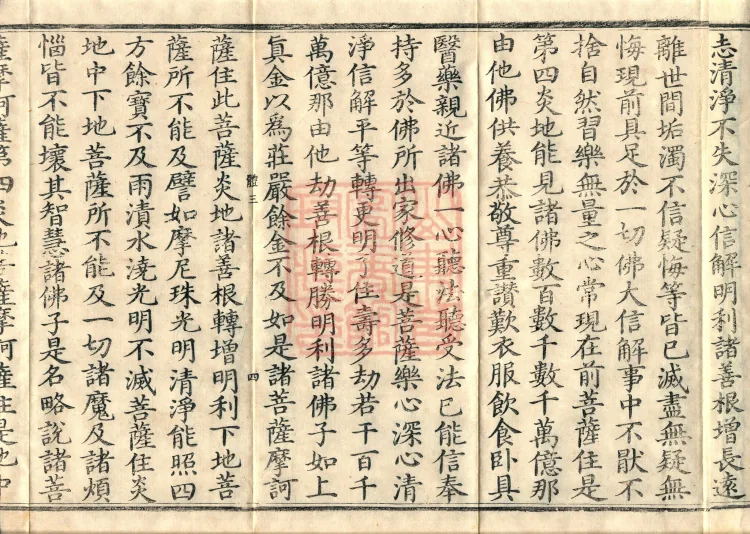 志清淨不失深心信解明利諸善根增長遠
離世間垢濁不信疑悔等皆已滅盡無疑無
悔現前具足於一切佛大信解事中不猒不
捨自然習樂無量之心常現在前菩薩住是
第四炎地能見諸佛數百數千數千萬億那
由他佛供養恭敬尊重讚歎衣服飲食卧具
醫藥親近諸佛一心聽法聽受法已能信奉
持多於佛所出家修道是菩薩樂心深心清
淨信解平等轉更明了住壽多劫若干百千
萬億那由他劫善根轉勝明利諸佛子如上
真金以為莊嚴餘金不及如是諸菩薩摩訶
體三
四
薩住此菩薩炎地諸善根轉增明利下地菩
薩所不能及譬如摩尼珠光明清淨能照四
方餘寶不及雨漬水澆光明不滅菩薩住炎
地中下地菩薩所不能及一切諸魔及諸煩
惱皆不能壞其智慧諸佛子是名略說諸菩
薩摩訶薩第四炎地菩薩摩訶薩住是地中